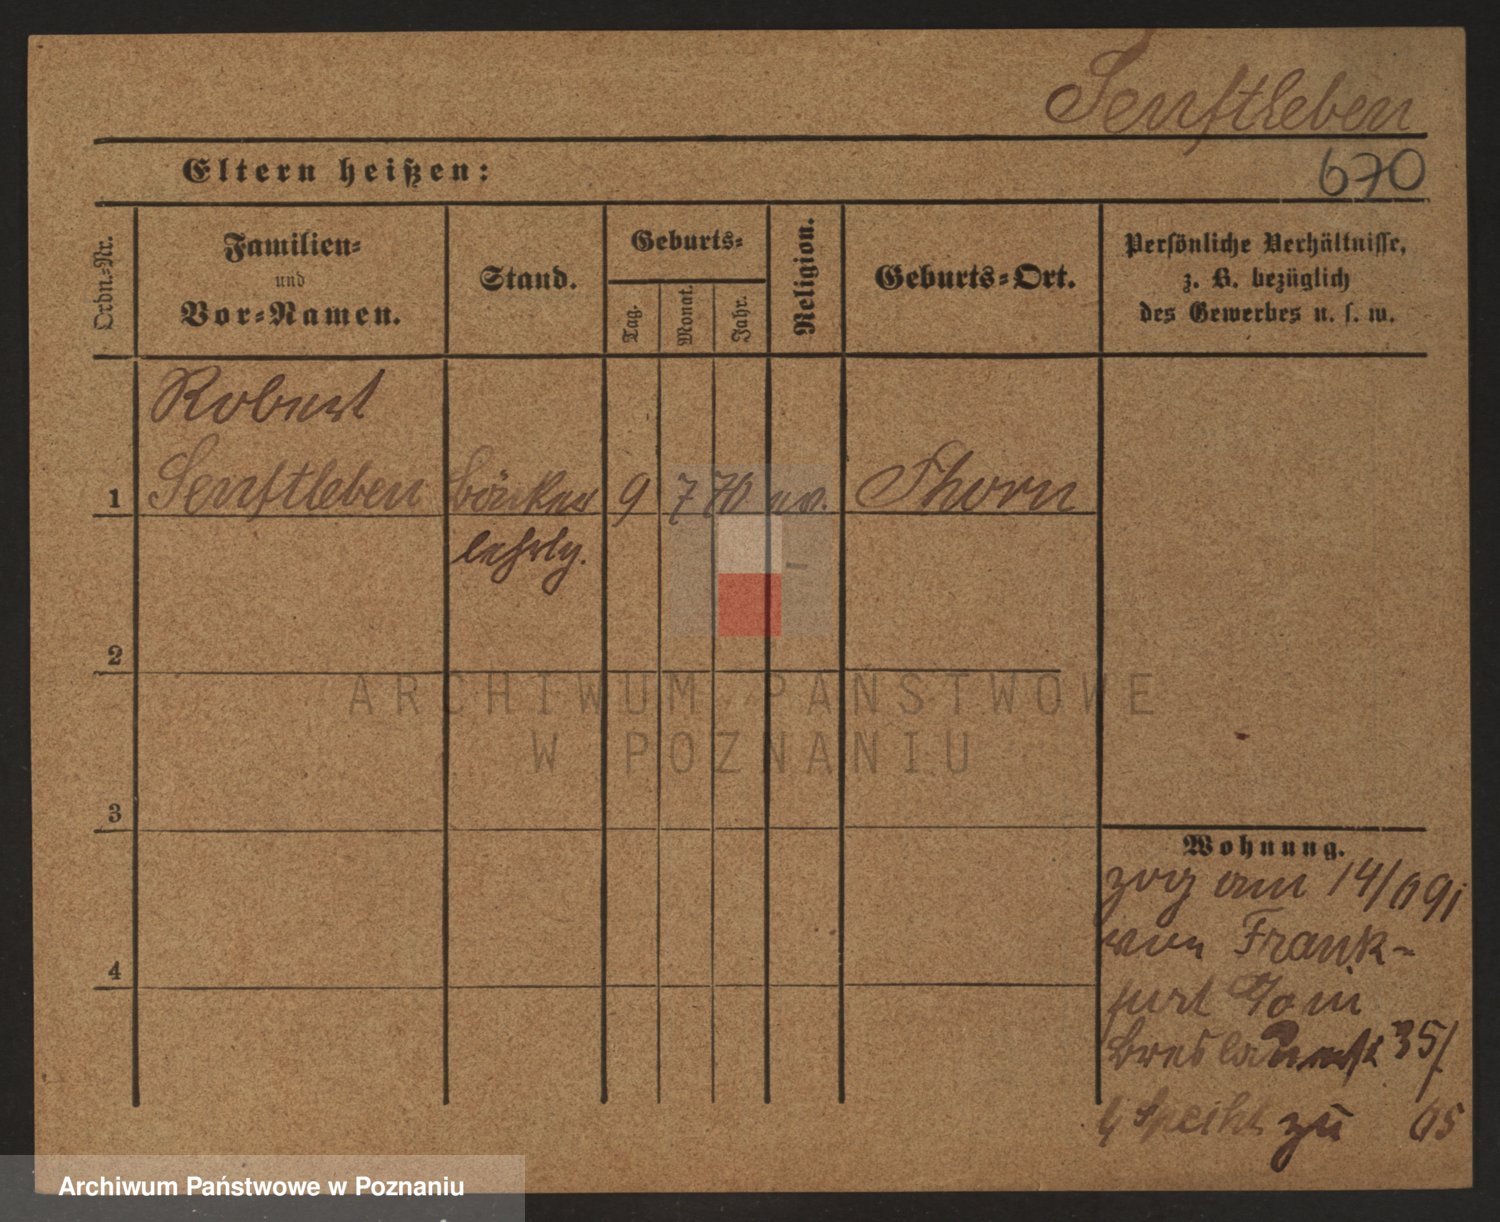 Senftleben
Eltern heißen:
670
Ordn.-Nr.
Familien-
und
Vor-Namen.
Stand.
Geburts-
Tag.
Monat.
Jahr.
Religion.
Geburts-Ort.
Persönliche Verhältnisse,
z. B. bezüglich
des Gewerbes u. s. w.
Robert
1 Senftleben Bäcker 9 7 70 ev. Thorn
lehrlg.
2
ARCHIWUM PAŃSTWOWE
W POZNANIU
3
Wohnung.
zog am 14/ 91
von Frank-
furt
Breslauerst 35/
b Specht zu
4
Archiwum Państwowe w Poznaniu